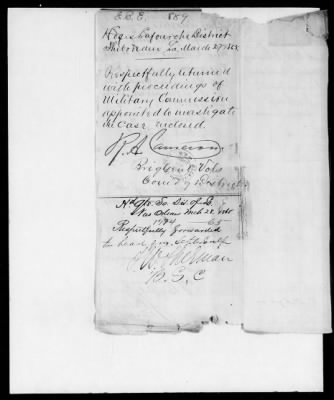 Hdqrs Lafourche District
Thibodaux La. March 27
Respectfully returned
with proceedings of
Military Commission
appointed to investigate
the case enclosed.
R. A. Cameron
Brig Genl Vols
Comd'g District
Hd Qrs So. Div of La
New Orleans Mch 28
Respectfully forwarded
to
T. W. Sherman
B. G. C